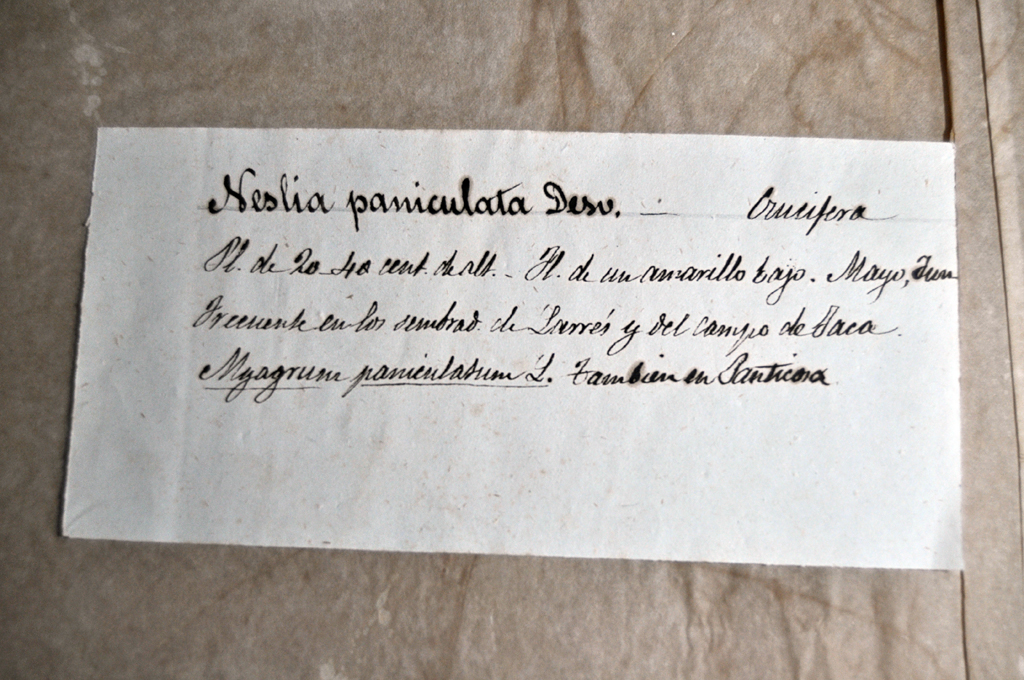 Neslia paniculata Desv. — Crucifera
Pl. de 20 40 cent. de alt. - Fl. de un amarillo bajo. Mayo, Jun
Frecuente en los sembrad. de Larrés y del campo de Jaca.
Myagrum paniculatum L. Tambien en Panticosa